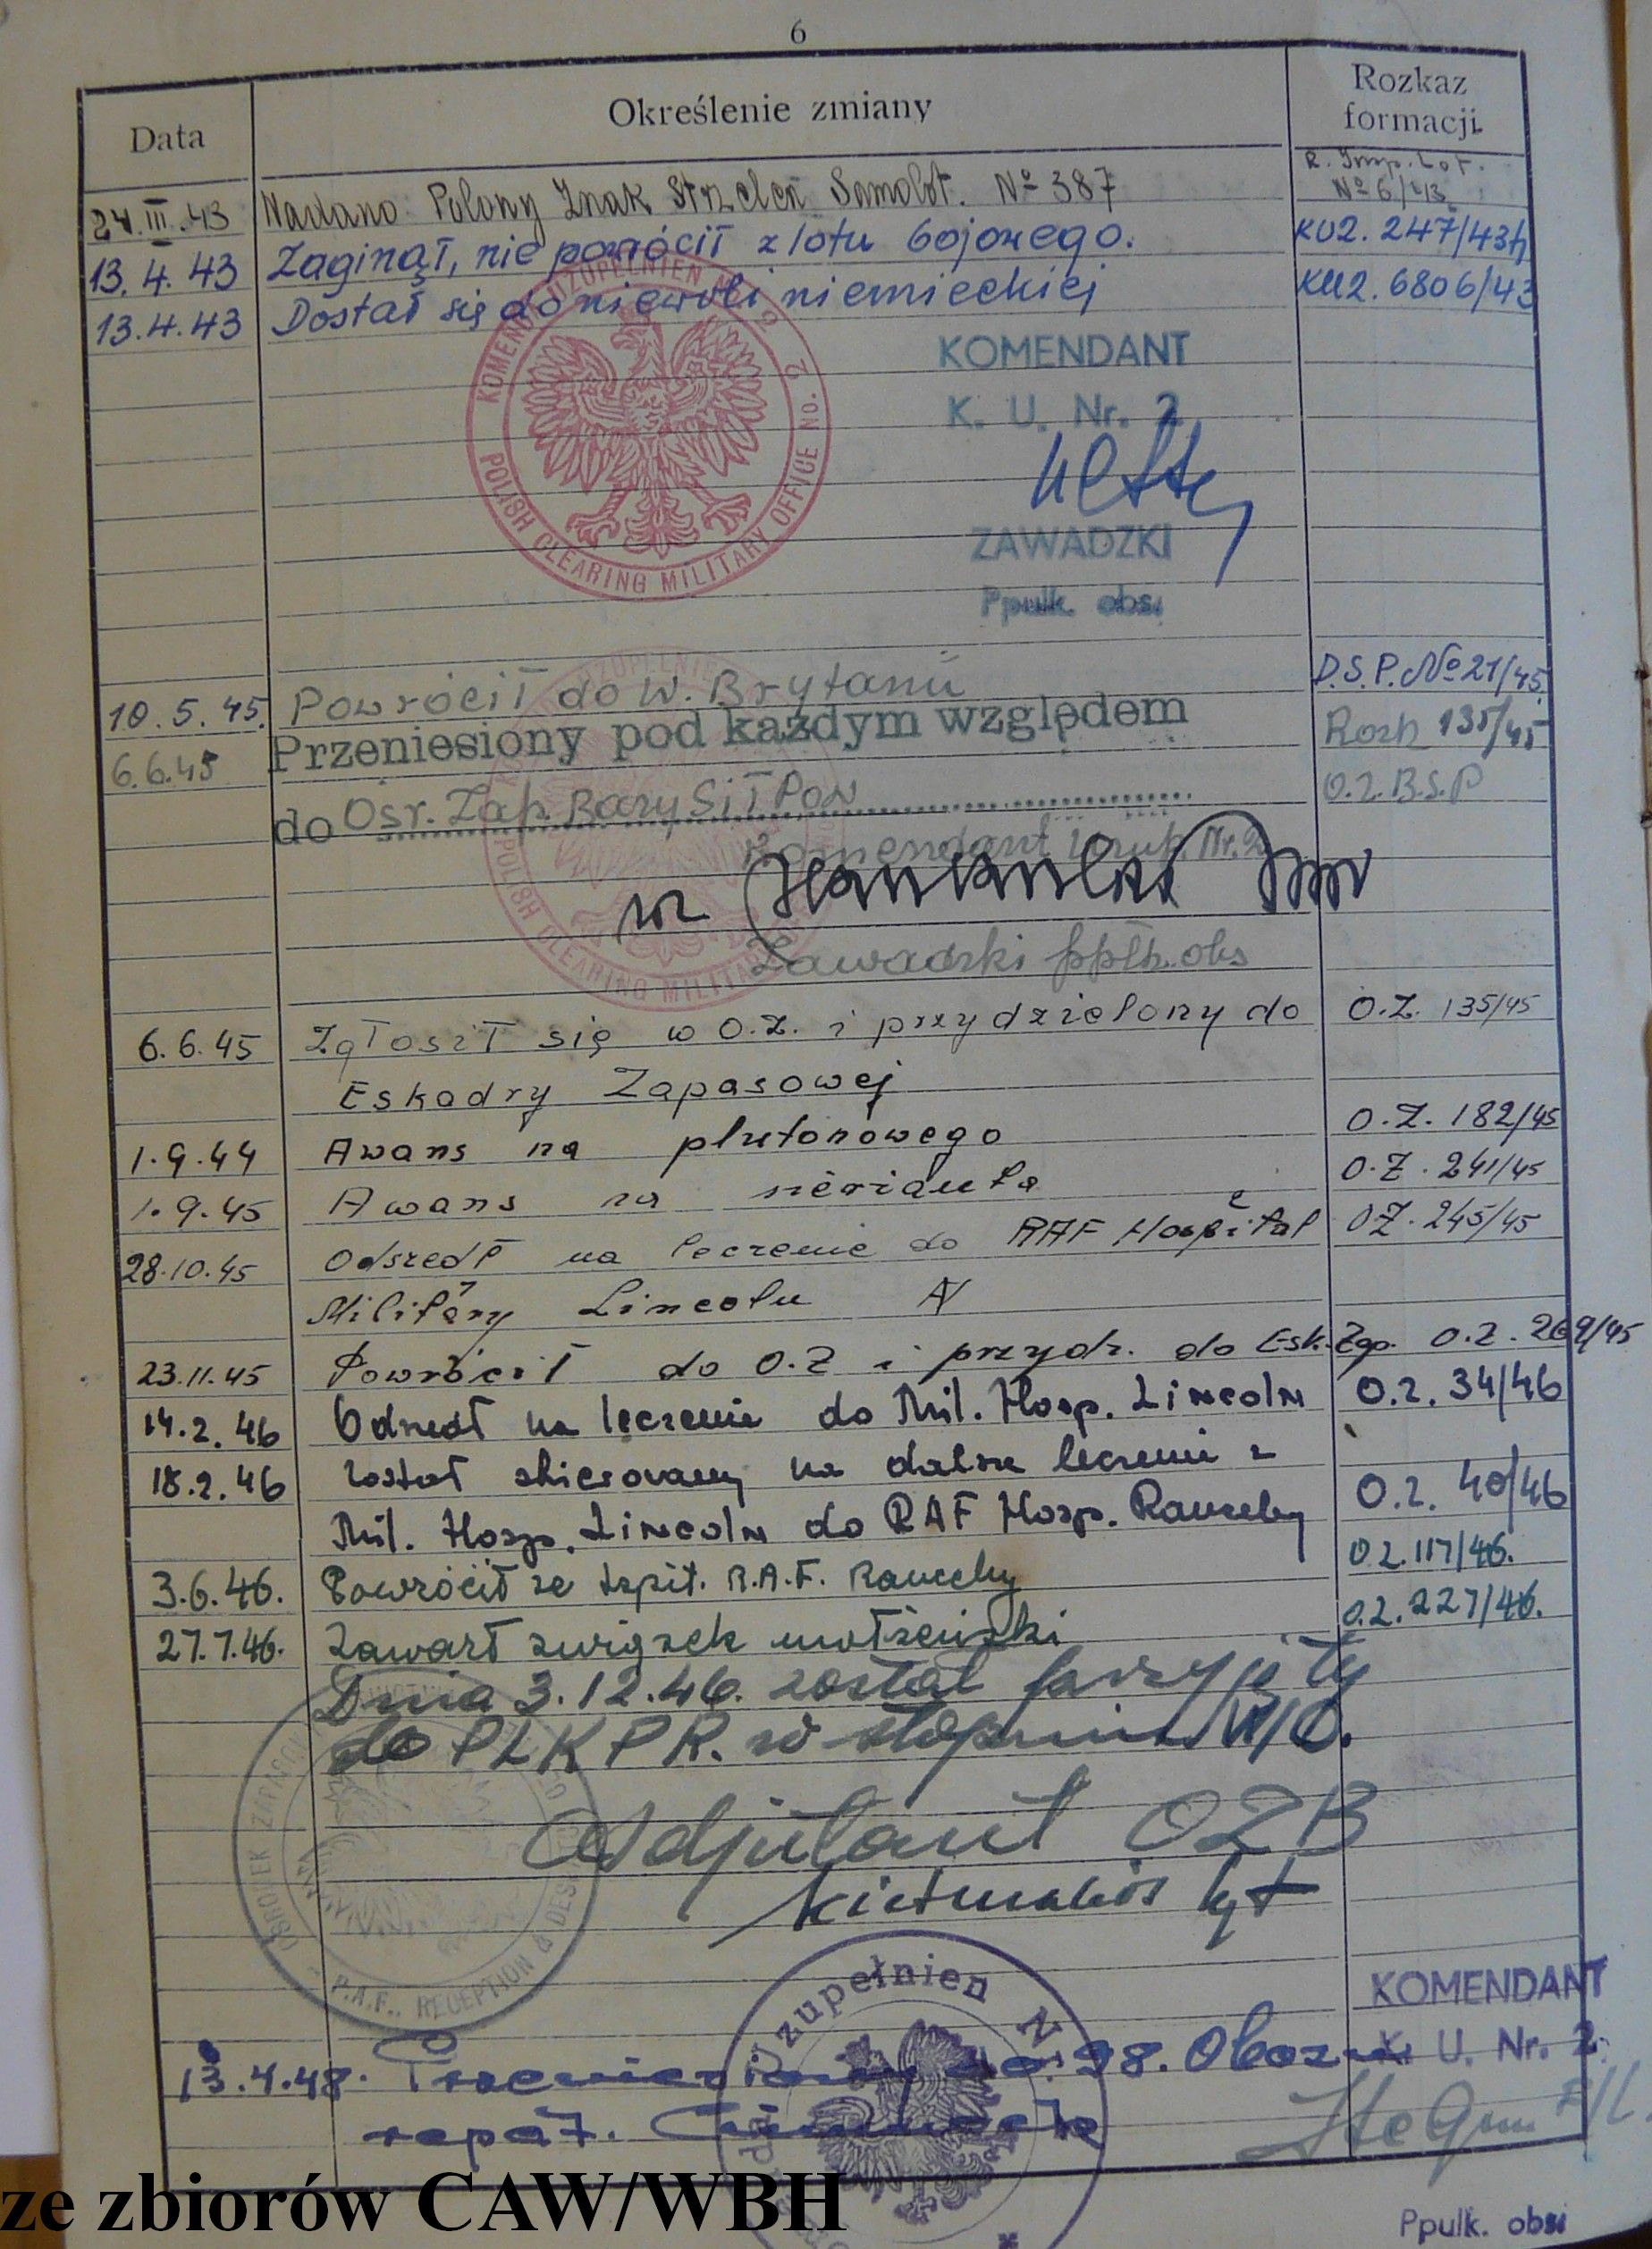 6
Data
Określenie zmiany
Rozkaz
formacji.
24.III.43 Nadano Polowy Znak Strzelca Samolot. Nº 387 R. Insp. Lot. Nº 6/43
13.4.43 Zaginął, nie powrócił z lotu bojowego. KU2. 247/43
13.4.43 Dostał się do niewoli niemieckiej KU2. 6806/43
KOMENDA UZUPEŁNIEŃ Nr. 2
POLISH CLEARING MILITARY OFFICE No. 2
KOMENDANT
K. U. Nr. 2
ZAWADZKI
Ppułk. obs.
10.5.45. Powrócił do W. Brytanii D.S.P. Nº 21/45.
6.6.45 Przeniesiony pod każdym względem Rozk 135/45
do Ośr. Zap. Bazy Sił Pow O.Z.B.S.P
Komendant Uzup. Nr. 2
wz
Zawadzki ppłk. obs
6.6.45 Zgłosił się w O.Z. i przydzielony do O.Z. 135/45
Eskadry Zapasowej
1.9.44 Awans na plutonowego O.Z. 182/45
1.9.45 Awans na sierżanta O.Z. 241/45
28.10.45 Odszedł na leczenie do RAF Hospital OZ. 245/45
Military Lincoln
23.11.45 Powrócił do O.Z i przydz. do Esk. Zap. O.Z. 269/45
14.2.46 Odszedł na leczenie do Mil. Hosp. Lincoln O.Z. 34/46
18.2.46 został skierowany na dalsze leczenie z
Mil. Hosp. Lincoln do RAF Hosp. Rauceby O.Z. 40/46
3.6.46. Powrócił ze szpit. R.A.F. Rauceby O.Z. 117/46.
27.7.46. Zawarł związek małżeński O.Z. 227/46.
Dnia 3.12.46. został przyjęty
do PLKPR. w stopniu
Adjutant OZB
OŚRODEK ZAPASOWY
P.A.F. RECEPTION &
Uzupełnień Nr
13.4.48. Przeniesiony do 98. Obozu
repat.
KOMENDANT
K. U. Nr. 2
Ppułk. obs.
ze zbiorów CAW/WBH